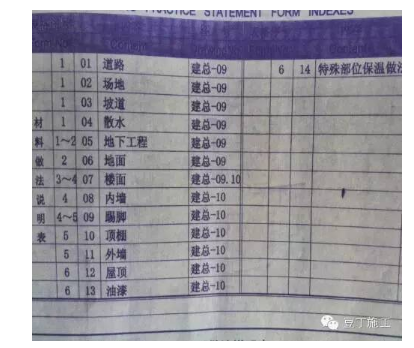 PRACTICE STATEMENT FORM INDEXES
1 01 道路 建总-09 6 14 特殊部位保温做法
1 02 场地 建总-09
1 03 坡道 建总-09
材 1 04 散水 建总-09
料 1~2 05 地下工程 建总-09
做 2 06 地面 建总-09
法 3~4 07 楼面 建总-09.10
说 4 08 内墙 建总-10
明 4~5 09 踢脚 建总-10
表 5 10 顶棚 建总-10
5 11 外墙 建总-10
6 12 屋顶 建总-10
6 13 油漆 建总-10
豆丁施工